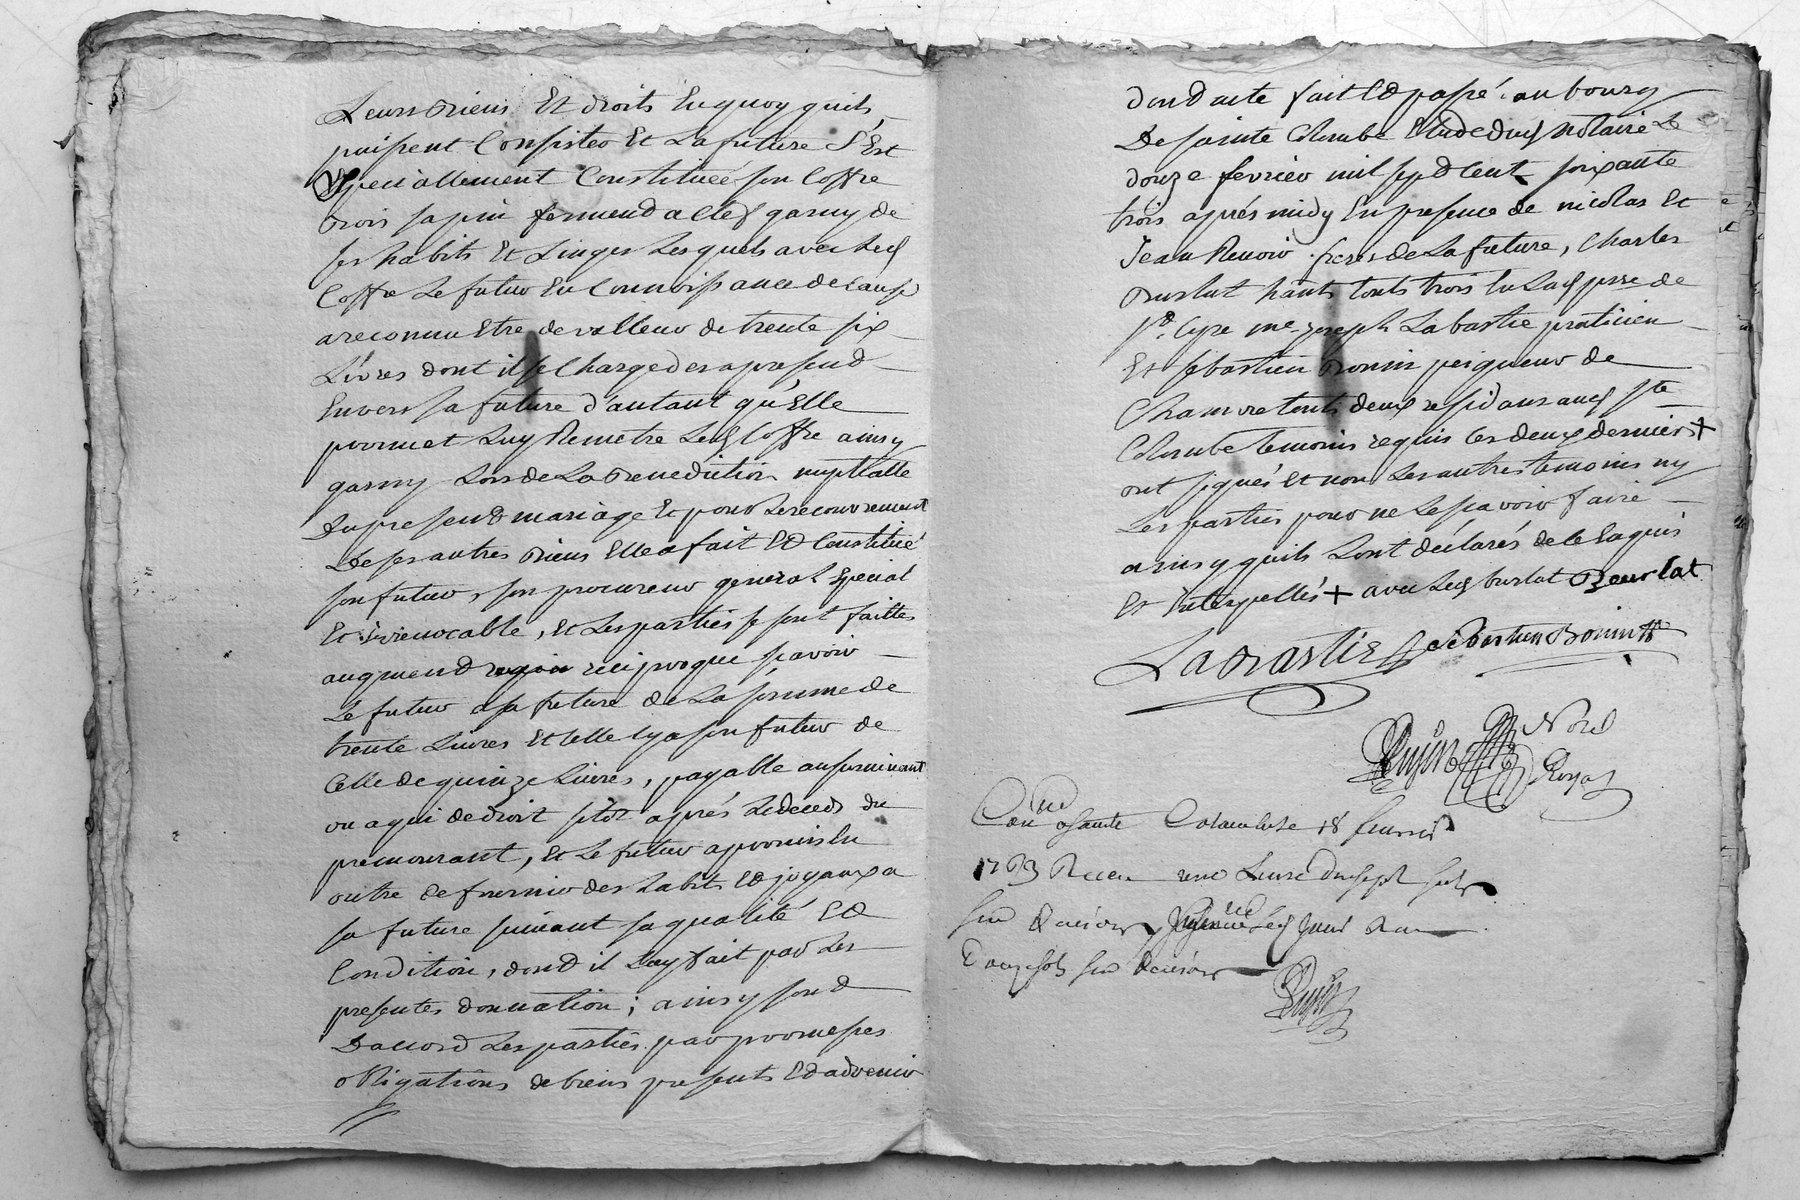 Leurs biens Et droits En quoy quils
puissent Consister Et La future S'Est
Speciallement Constituée son Coffre
bois sapin fermend a Clef garny de
ses habits Et Linges Lesquels avec Led
Coffre Le futur En Connoissance de Cause
a reconnu Etre de valleur de trente six
Livres dont il se Charge des a present
Envers sa future d'autant qu'Elle
promet Luy Remetre Led Coffre ainsy
garny Lors de La Benediction nuptialle
Du present mariage Et pour Le recouvrement
De ses autres biens Elle a fait Ed Constitué
son futur, son procureur general special
Et irrevocable, Et Les parties se sont faittes
augmend reciproque sçavoir
Le futur a sa future de La somme de
trente Livres Et Elle a son futur de
Celle de quinze Livres, payable au survivant
ou a qui de droit sitôt aprés Le deceds du
premourant, Et Le futur a promis En
outre de fournir des habits Ed joyaux a
sa future suivant sa qualité Ed
Condition, dond il Luy fait par Les
presentes donnation; ainsy sond
D'accord Les parties par promesses
obligations de biens presents Ed advenir
Dond acte fait Ed passé au bourg
De sainte Colombe Etude dud Notaire Le
douze fevrier mil sept Cent soixante
trois aprés midy En presence de nicolas Et
Jean Renoir freres de La future, Charles
Burlat hants touts trois En Lad psse de
St. Cyre me joseph Labastie praticien
Et sebastien Bonin peigneur de
Chamvre touts deux residans aud Ste
Colombe temoins requis Les deux derniers +
ont signés Et non Les autres temoins ny
Les parties pour ne Le sçavoir faire
ainsy quils Sont declarés de Ce Enquis
Et Interpellés + avec Led burlat Beurlat
Labastie Sebastien Bonin
Nore
Royal
a Sainte Colombe 18 fevrier
1763 Receu une Livre dix sept sols
six deniers
Douze sols six deniers